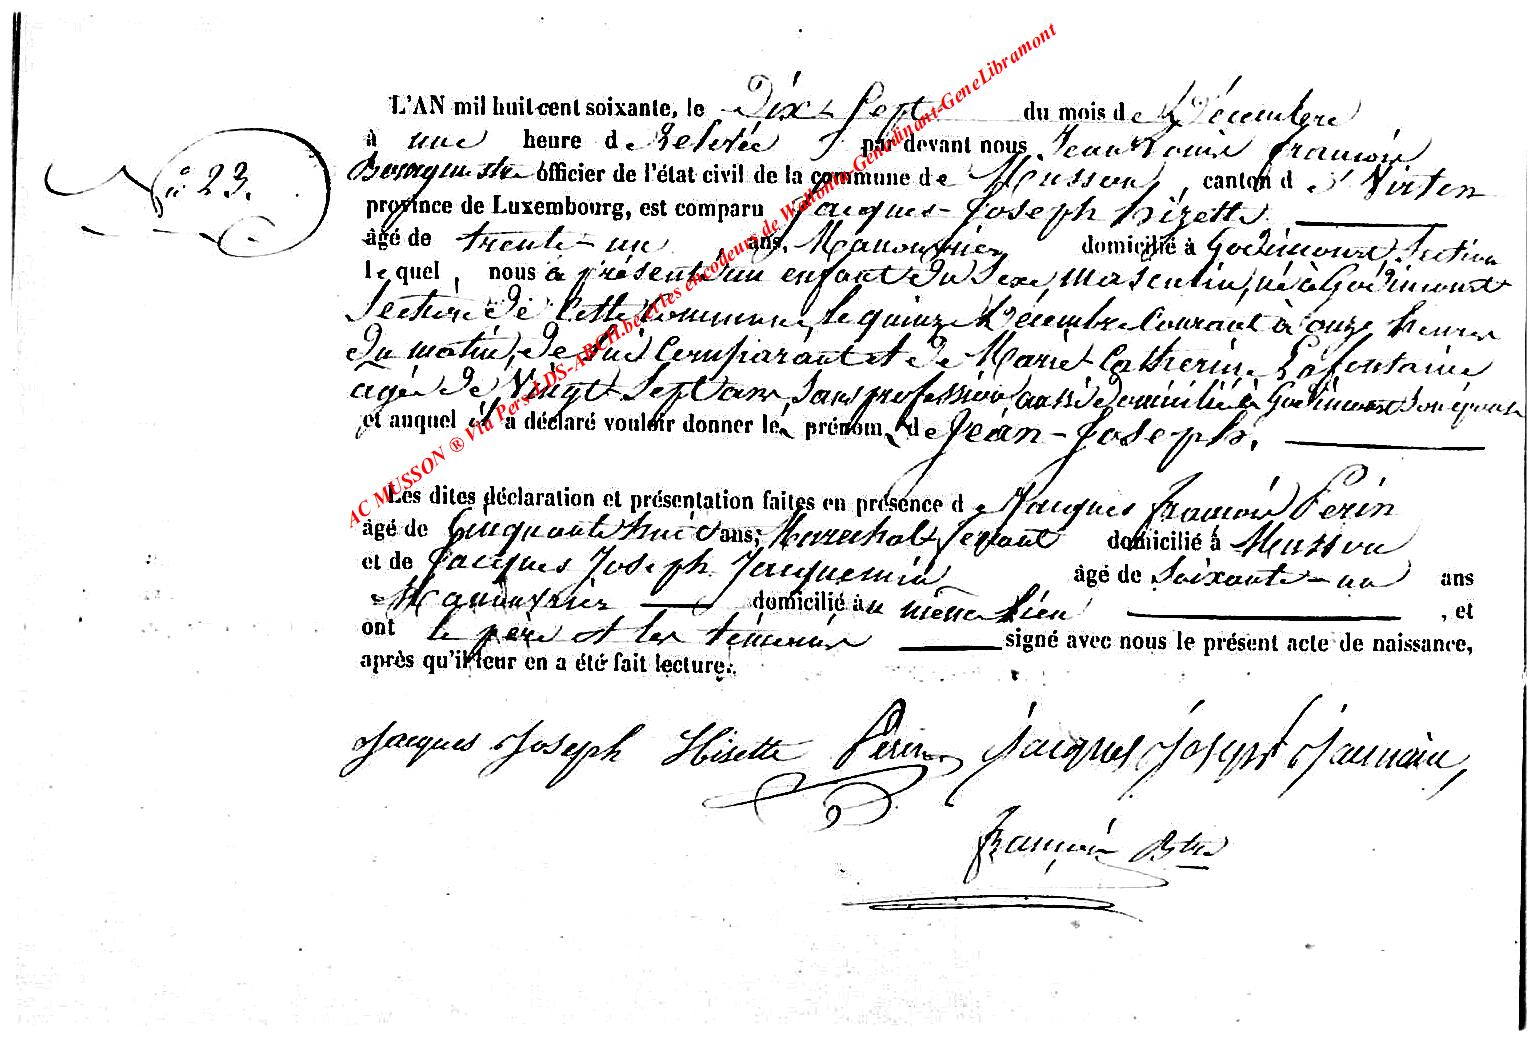 L'AN mil huit cent soixante, le Dix-Sept du mois de Décembre
à une heure de Relevée par devant nous Jean Louis François
N° 23.
Bourgmestre officier de l'état civil de la commune de Musson, canton de Virton
province de Luxembourg, est comparu Jacques-Joseph hizette
âgé de trente-un ans, Manouvrier domicilié à Godimont Section
lequel, nous a présenté un enfant du Sexe masculin, né à Godimont
Section de Cette Commune, le quinze Décembre Courant à onze heures
du matin, de lui Comparant et de Marie-Catherine Lafontaine
agée de Vingt-Sept ans, Sans profession, aussi domiciliée à Godimont Son épouse
et auquel il a déclaré vouloir donner les prénoms de Jean-Joseph.
Les dites déclaration et présentation faites en présence de Jacques François Perin
âgé de Cinquante huit ans; Marechal-ferrant domicilié à Musson
et de Jacques Joseph Jacquemin âgé de Soixante-un ans
Manouvrier domicilié au même lieu, et
ont le père et les témoins signé avec nous le présent acte de naissance,
après qu'il leur en a été fait lecture.
Jacques Joseph Hisette Perin Jacques Joseph
François Btre
AC MUSSON ® Via Pers-LDS-ARCH.be et les encodeurs de Wallonia-Genedinant-GeneLibramont